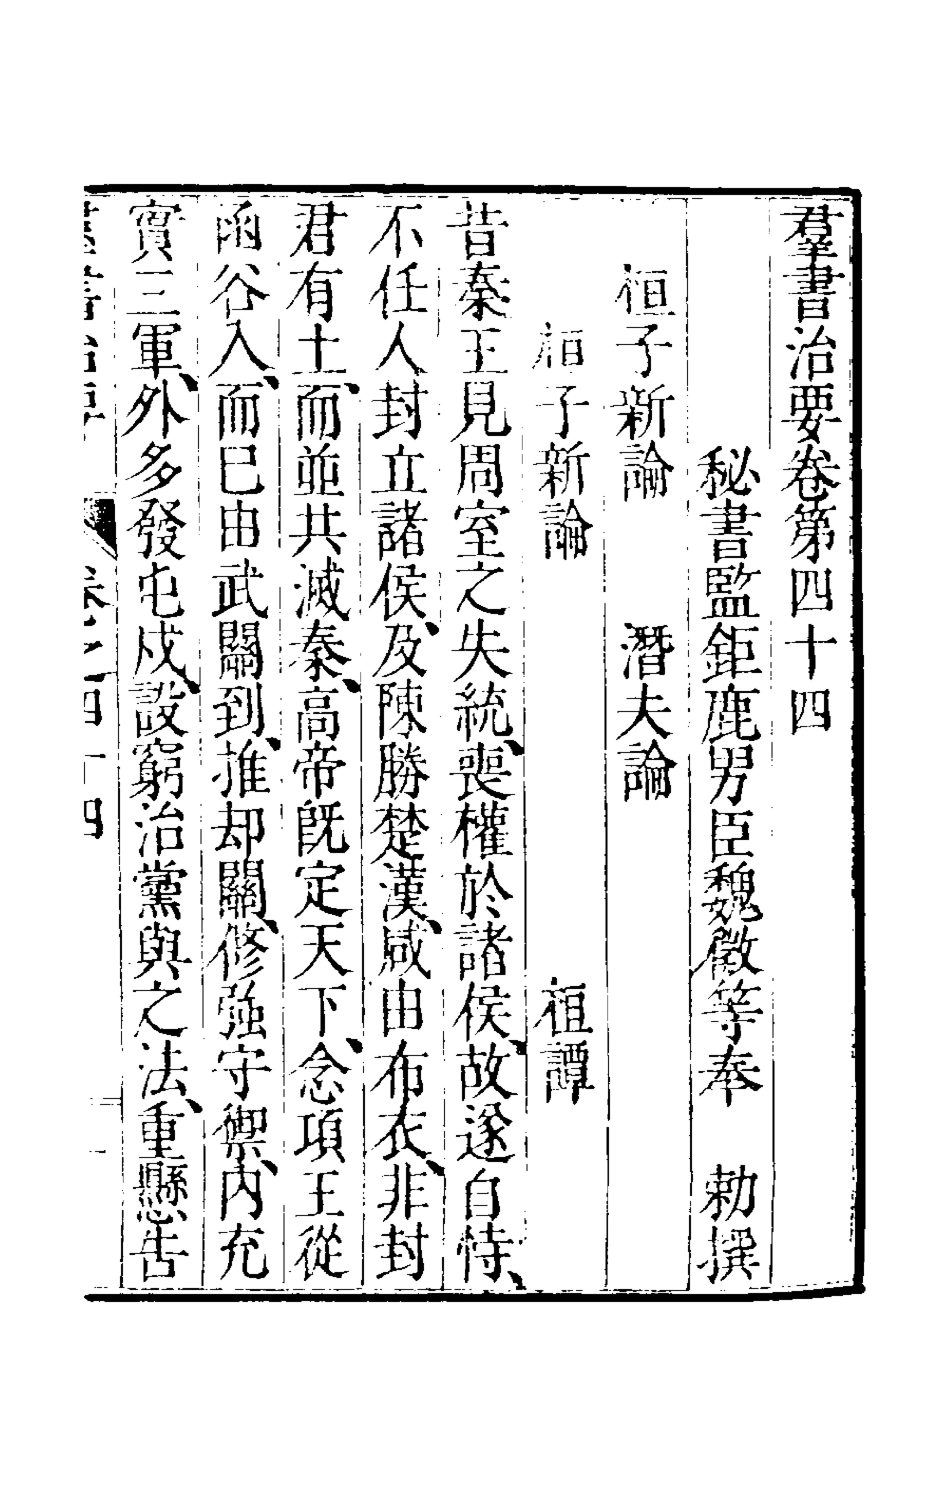 羣書治要卷第四十四
秘書監鉅鹿男臣魏徵等奉　勅撰
桓子新論　　潛夫論
桓子新論　　　　　　　桓譚
昔秦王見周室之失統、喪權於諸侯、故遂自恃、
不任人封立諸侯、及陳勝楚漢、咸由布衣、非封
君有土、而並共滅秦、高帝既定天下、念項王從
函谷入、而巳由武關到、推却關、修强守禦、內充
實三軍、外多發屯戍、設窮治黨與之法、重懸告
羣書治要　卷之四十四　一